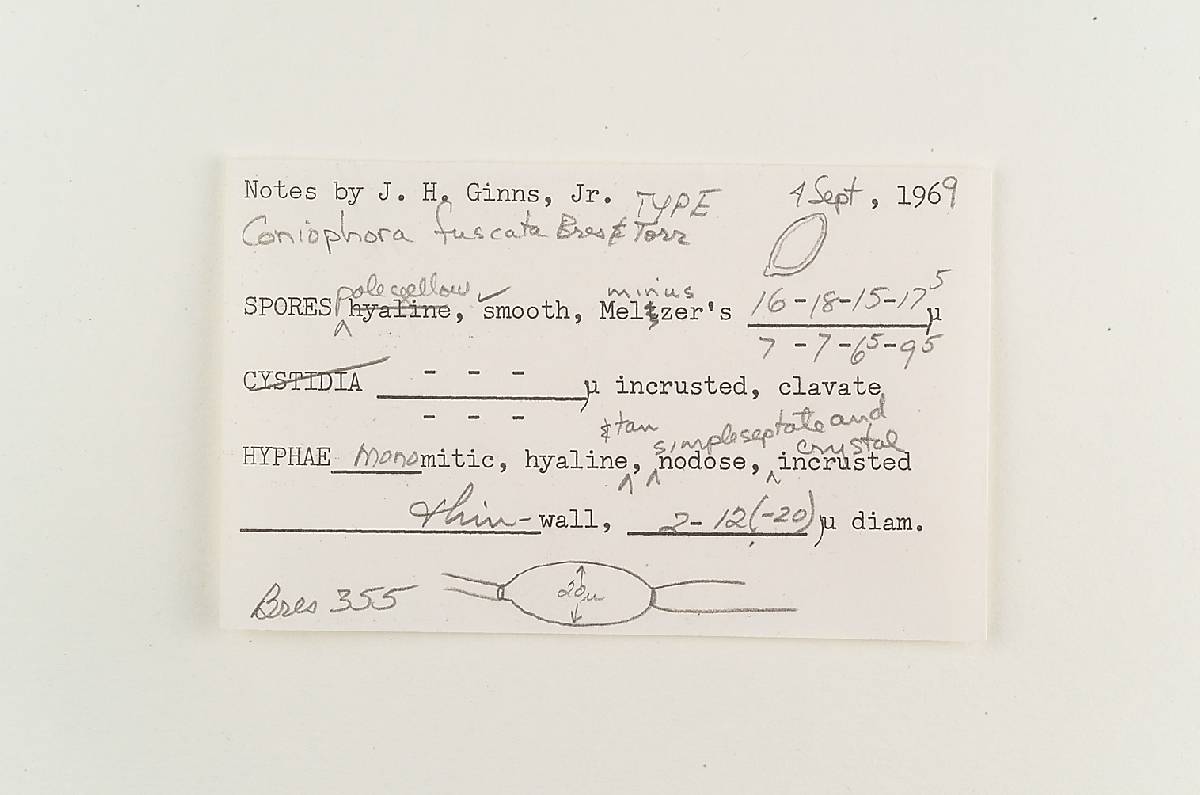 Notes by J. H. Ginns, Jr. TYPE 4 Sept, 1969
Coniophora fuscata Bres & Torr
pale yellow minus 16-18-15-17⁵
SPORES ^ hyaline, ✓ smooth, Meltzer's μ
7-7-6⁵-9⁵
CYSTIDIA - - - μ incrusted, clavate
- - -
& tan simple septate and crystal
HYPHAE Monomitic, hyaline, ^ ^ nodose, ^ incrusted
thin-wall, 2-12(-20) μ diam.
Bres 355 20μ